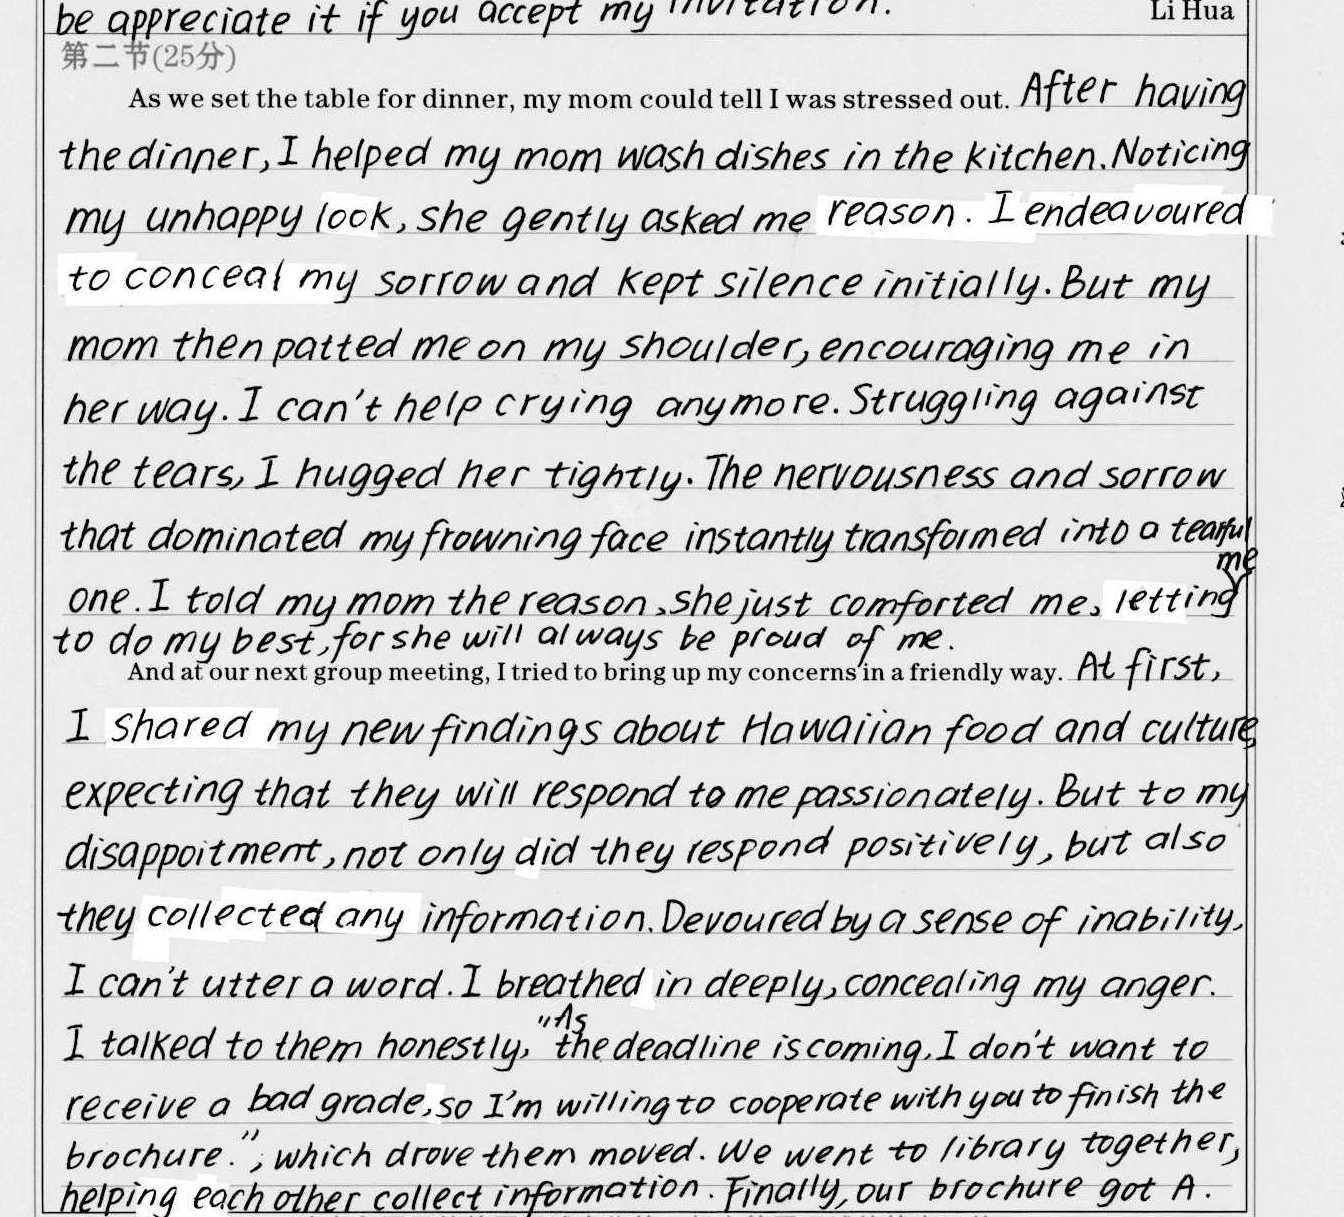 be appreciate it if you accept my invitation.
Li Hua
第二节(25分)
As we set the table for dinner, my mom could tell I was stressed out. After having
the dinner, I helped my mom wash dishes in the kitchen. Noticing
my unhappy look, she gently asked me reason. I endeavoured
to conceal my sorrow and kept silence initially. But my
mom then patted me on my shoulder, encouraging me in
her way. I can't help crying anymore. Struggling against
the tears, I hugged her tightly. The nervousness and sorrow
that dominated my frowning face instantly transformed into a tearful
me
one. I told my mom the reason, she just comforted me, letting
to do my best, for she will always be proud of me.
And at our next group meeting, I tried to bring up my concerns in a friendly way. At first,
I shared my new findings about Hawaiian food and culture,
expecting that they will respond to me passionately. But to my
disappoitment, not only did they respond positively, but also
they collected any information. Devoured by a sense of inability,
I can't utter a word. I breathed in deeply, concealing my anger.
"As
I talked to them honestly, the deadline is coming, I don't want to
receive a bad grade, so I'm willing to cooperate with you to finish the
brochure.", which drove them moved. We went to library together,
helping each other collect information. Finally, our brochure got A.